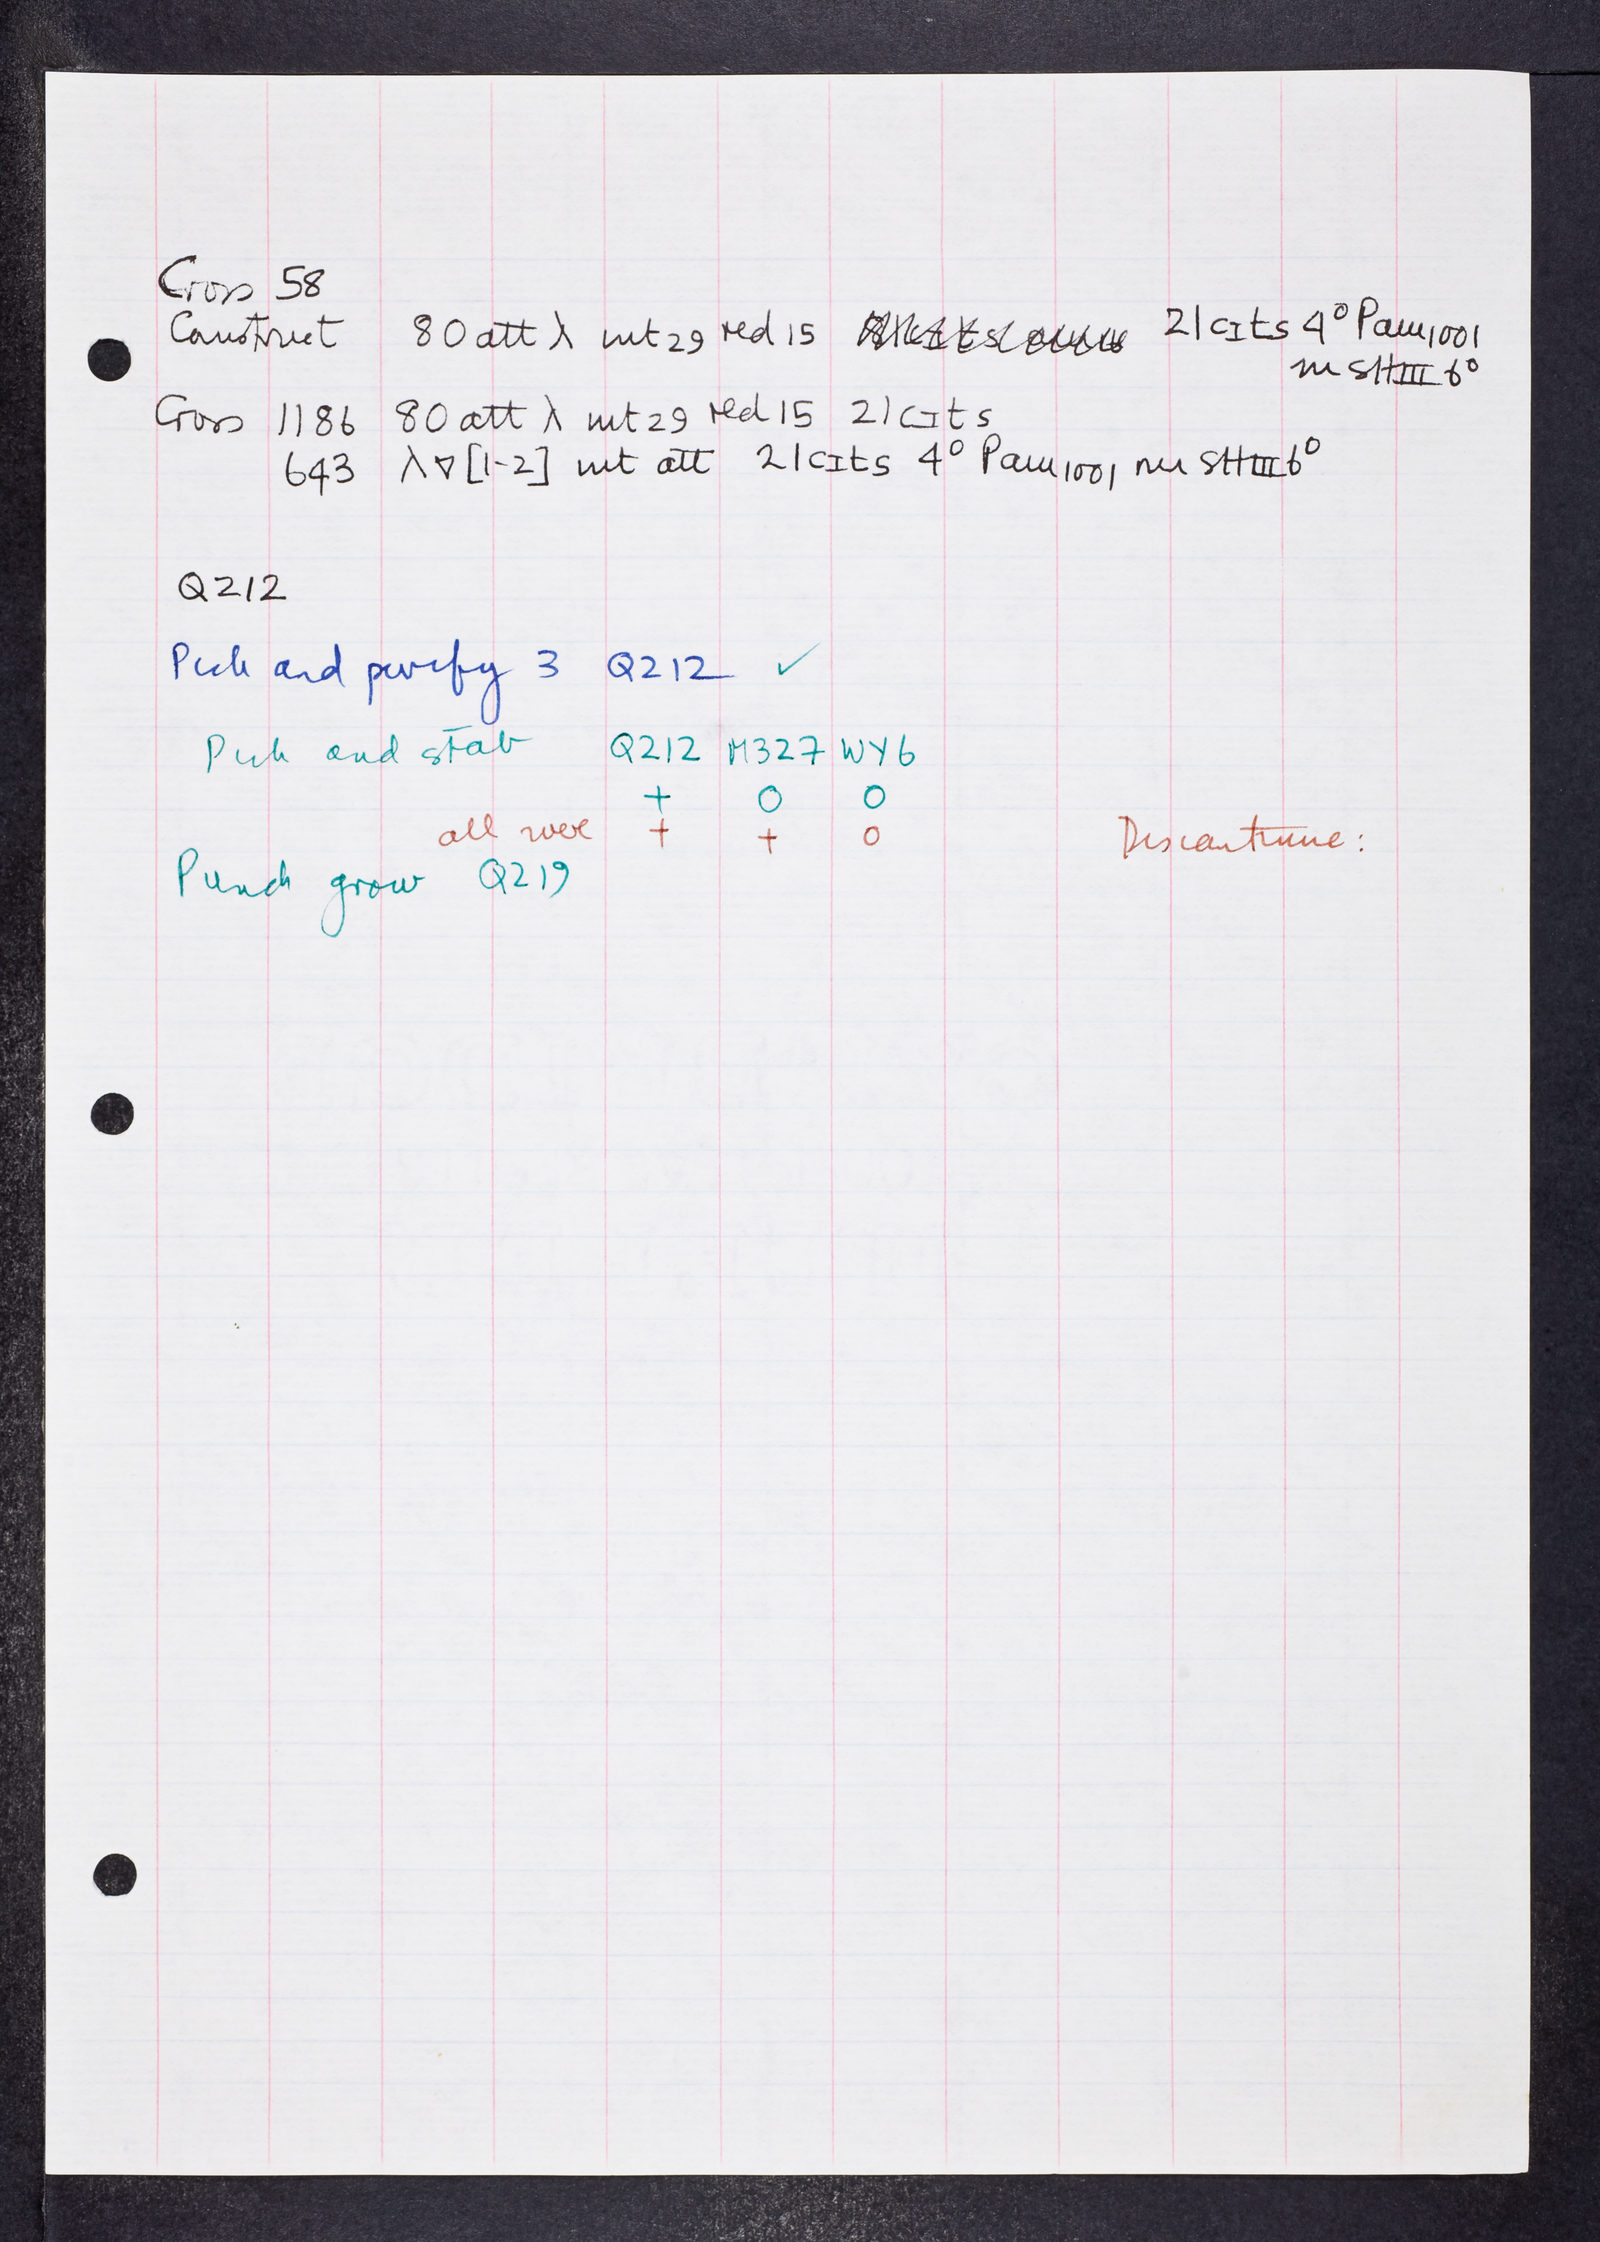 Cross 58
Construct 80 att λ int 29 red 15 21 cIts 4° Pam 1001
in SHIII 6°
Cross 1186 80 att λ int 29 red 15 21 cIts
643 λ ∇ [1-2] int att 21 cIts 4° Pam 1001 in SHIII 6°
Q212
Pick and purify 3 Q212 ✓
Pick and stab Q212 M327 WY6
+ O O
all were + + O Discontinue:
Punch grow Q219